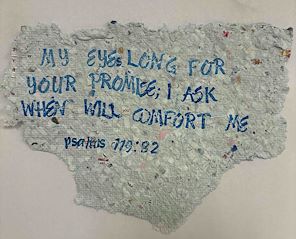 MY EYES LONG FOR
YOUR PROMISE; I ASK
WHEN WILL COMFORT ME
psalms 119:82